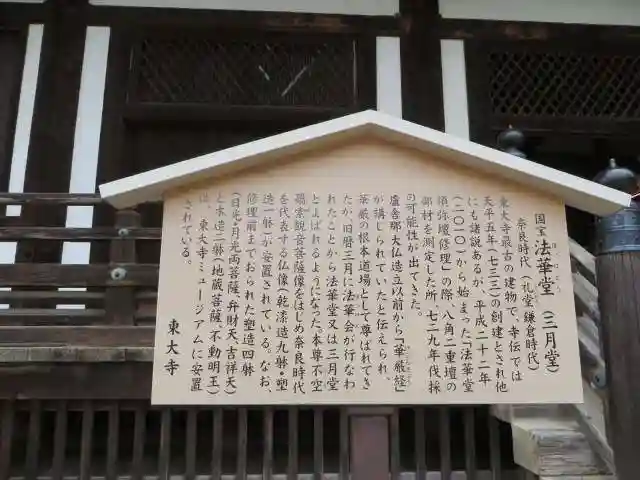 国宝 法華堂（三月堂）
奈良時代（礼堂 鎌倉時代）
東大寺最古の建物で、寺伝では
天平五年（七三三）の創建とされ
にも諸説あるが、平成二十二年
（二〇一〇）から始まった「法華堂
須弥壇修理」の際、八角二重壇の
部材を測定した所、七二九年伐採
の可能性が出てきた。
盧舎那大仏造立以前から『華厳経』
が講じられていたと伝えられ、
華厳の根本道場として尊ばれてき
たが、旧暦三月に法華会が行なわ
れたことから法華堂又は三月堂
とよばれるようになった。本尊不空
羂索観音菩薩像をはじめ奈良時代
を代表する仏像（乾漆造九躰・塑
造一躰）が安置されている。なお、
修理前までおられた塑造四躰
（日光・月光両菩薩、弁財天、吉祥天）
と木造二躰（地蔵菩薩、不動明王）
は、東大寺ミュージアムに安置
されている。
東大寺